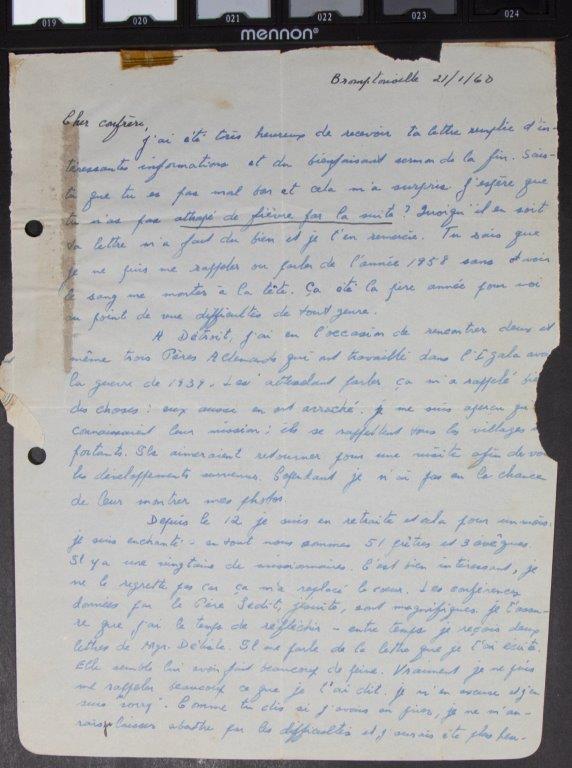 019 020 021 022 023 024
mennon®
Bromptonville 21/1/60
Cher confrère,
j'ai été très heureux de recevoir ta lettre remplie d'in-
téressantes informations et du bienfaisant sermon de la fin. Sais-
tu que tu es pas mal bon et cela m'a surpris. J'espère que
tu n'as pas attrapé de fièvre par la suite? Quoiqu'il en soit
ta lettre m'a fait du bien et je t'en remercie. Tu sais que
je ne puis me rappeler ou parler de l'année 1958 sans avoir
le sang me monter à la tête. Ça été la pire année pour moi
au point de vue difficultés de tout genre.
A Détroit, j'ai eu l'occasion de rencontrer deux et
même trois Pères Allemands qui ont travaillé dans l'Egala avant
la guerre de 1939. Les attendant parler ça m'a rappelé bien
des choses: eux aussi en ont arraché. je me suis aperçu qu'
connaissaient leur mission: ils se rappellent tous les villages
portants. Ils aimeraient retourner pour une visite afin de voir
les développements survenus. Cependant je n'ai pas eu la chance
de leur montrer mes photos.
Depuis le 12 je suis en retraite et cela pour un mois:
je suis enchanté - en tout nous sommes 51 prêtres et 3 évêques.
Il y a une vingtaine de missionnaires. C'est bien intéressant, je
ne le regrette pas car ça m'a replacé le coeur. Les conférences
données par le Père jésuite, sont magnifiques. je t'assu-
re que j'ai le temps de réfléchir - entre temps je reçois deux
lettres de Mgr. Délisle. Il me parle de la lettre que je t'ai écrite.
Elle semble lui avoir fait beaucoup de peine. Vraiment je ne puis
me rappeler beaucoup ce que je t'ai dit. je m'en excuse et j'en
suis "sorry". Comme tu dis si j'avais eu je ne m'au-
rais laisser abattre par les difficultés et j'aurais été plus heu-